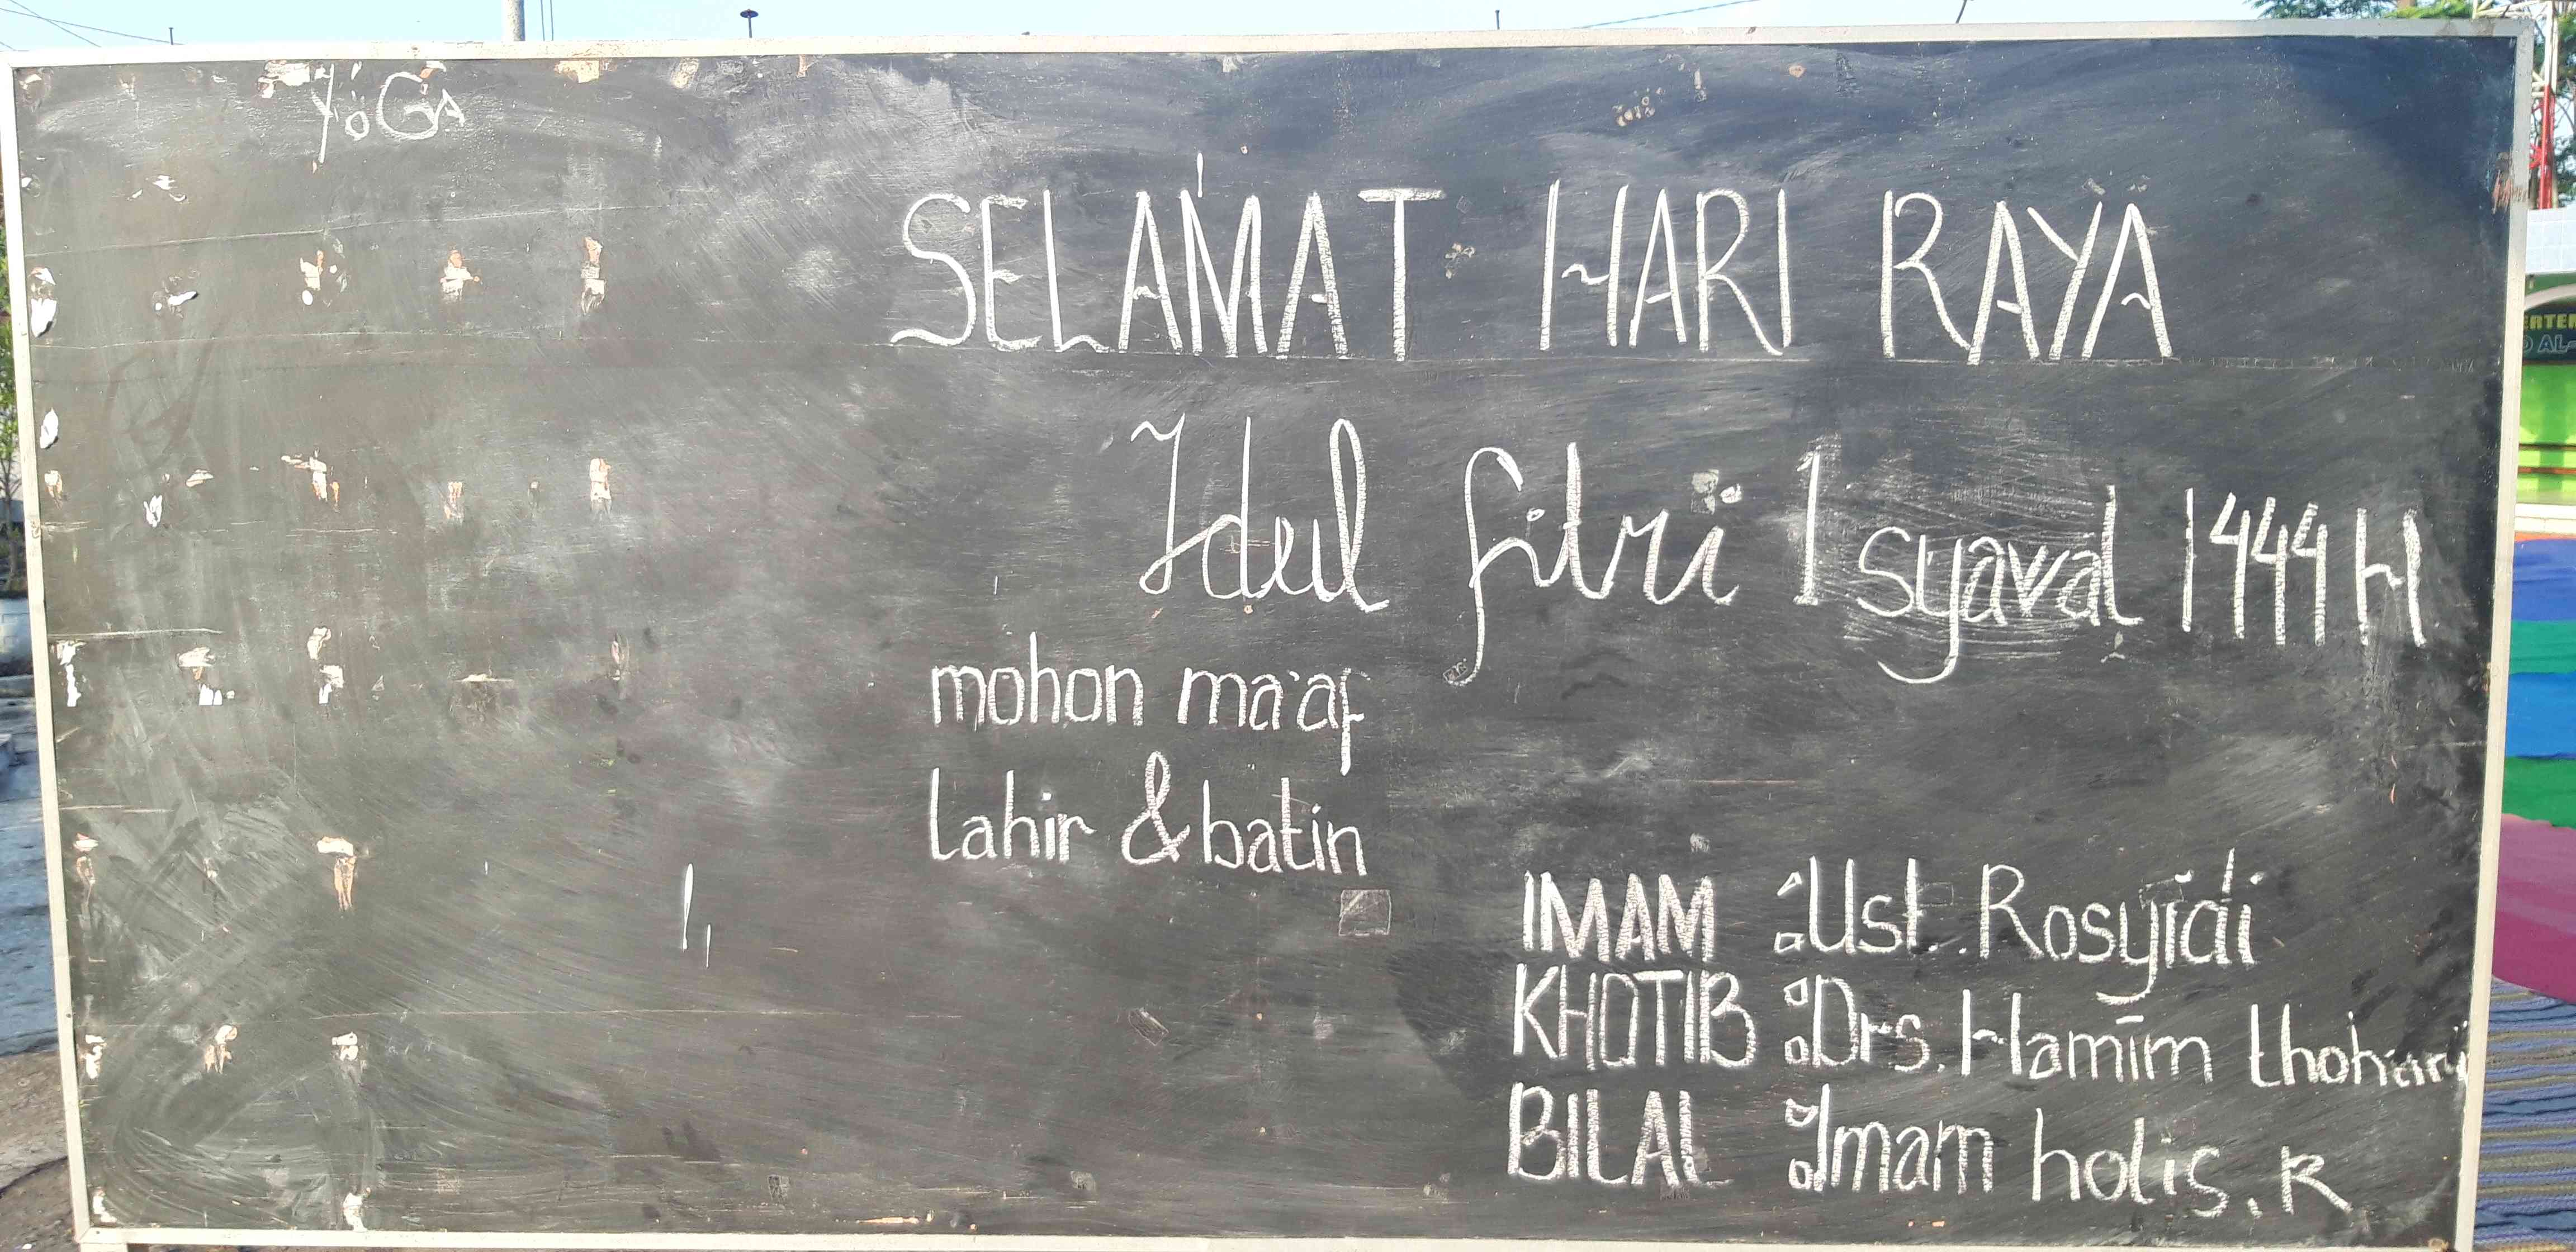 YoGA
SELAMAT HARI RAYA
Idul fitri 1 syawal 1444 H
mohon ma'af
lahir & batin
IMAM : Ust. Rosyidi
KHOTIB : Drs. Hamim thohari
BILAL : Imam holis. R
ERTE
AL-